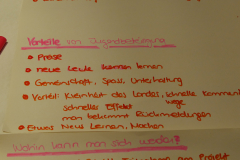 Vorteile von
• Presse
• neue Leute kennen lernen
• Gemeinschaft, Spass, Unterhaltung
• Vorteil: Kleinheit des Landes, schnelle
wege
schneller Effekt
man bekommt Rückmeldungen
• Etwas Neues Lernen, Machen
Wohin kann man sich wenden?